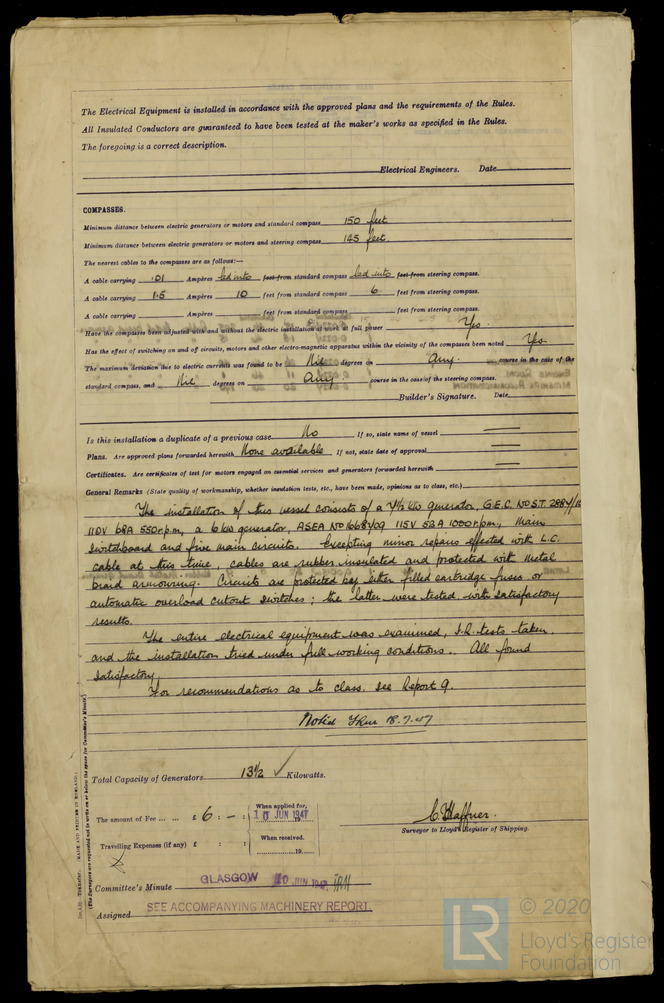 The Electrical Equipment is installed in accordance with the approved plans and the requirements of the Rules.
All Insulated Conductors are guaranteed to have been tested at the maker's works as specified in the Rules.
The foregoing is a correct description.
Electrical Engineers. Date
COMPASSES.
Minimum distance between electric generators or motors and standard compass 150 feet
Minimum distance between electric generators or motors and steering compass 145 feet
The nearest cables to the compasses are as follows:—
A cable carrying .01 Ampères led into feet from standard compass led into feet from steering compass.
A cable carrying 1.5 Ampères 10 feet from standard compass 6 feet from steering compass.
A cable carrying Ampères feet from standard compass feet from steering compass.
Have the compasses been adjusted with and without the electric installation at work at full power Yes.
Has the effect of switching on and off circuits, motors and other electro-magnetic apparatus within the vicinity of the compasses been noted Yes
The maximum deviation due to electric currents was found to be Nil degrees on Any. course in the case of the
standard compass, and Nil degrees on Any course in the case of the steering compass.
Builder's Signature. Date
Is this installation a duplicate of a previous case No If so, state name of vessel
Plans. Are approved plans forwarded herewith None available If not, state date of approval
Certificates. Are certificates of test for motors engaged on essential services and generators forwarded herewith
General Remarks (State quality of workmanship, whether insulation tests, etc., have been made, opinions as to class, etc.)
The installation of this vessel consists of a 7½ kW generator, G.E.C. No ST.
110V 68A 550 r.p.m, a 6 kW generator, ASEA No 1668709 115V 52A 1000 r.p.m, main
switchboard and five main circuits. Excepting minor repairs effected with L.C.
cable at this time, cables are rubber insulated and protected with metal
braid armouring. Circuits are protected by either filled cartridge fuses or
automatic overload cutout switches; the latter were tested with satisfactory
results.
The entire electrical equipment was examined, I.R. tests taken,
and the installation tried under full working conditions. All found
satisfactory.
For recommendations as to class see Report 9.
Noted 18.7.47
Total Capacity of Generators 13½ ✓ Kilowatts.
The amount of Fee ... ... £ 6 : - :
When applied for,
10 JUN 1947
19
Travelling Expenses (if any) £ : :
When received.
19
C. Haffner.
Surveyor to Lloyd's Register of Shipping.
Committee's Minute GLASGOW 10 JUN 1947
Assigned SEE ACCOMPANYING MACHINERY REPORT.
(MADE AND PRINTED IN ENGLAND.)
(The Surveyors are requested not to write on or below the space for Committee's Minute.)
LR
© 2020
Lloyd's Register
Foundation